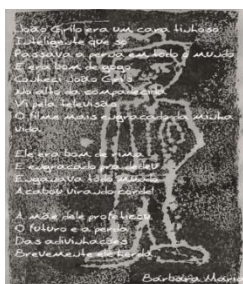 João Grilo era um cara tinhoso
Inteligente que só
Passava a perna em todo o mundo
E era bom de gogó
Conheci João Grilo
No alto da compadecida
Vi pela televisão
O filme mais engraçado da minha
vida.
Ele era bom de rima
E engraçado pra dedéu
Enganava todo mundo
Acabou virando cordel
A mãe dele profetizou
O futuro e a perda
Das adivinhações
Brevemente ele herda
Barbara Maria